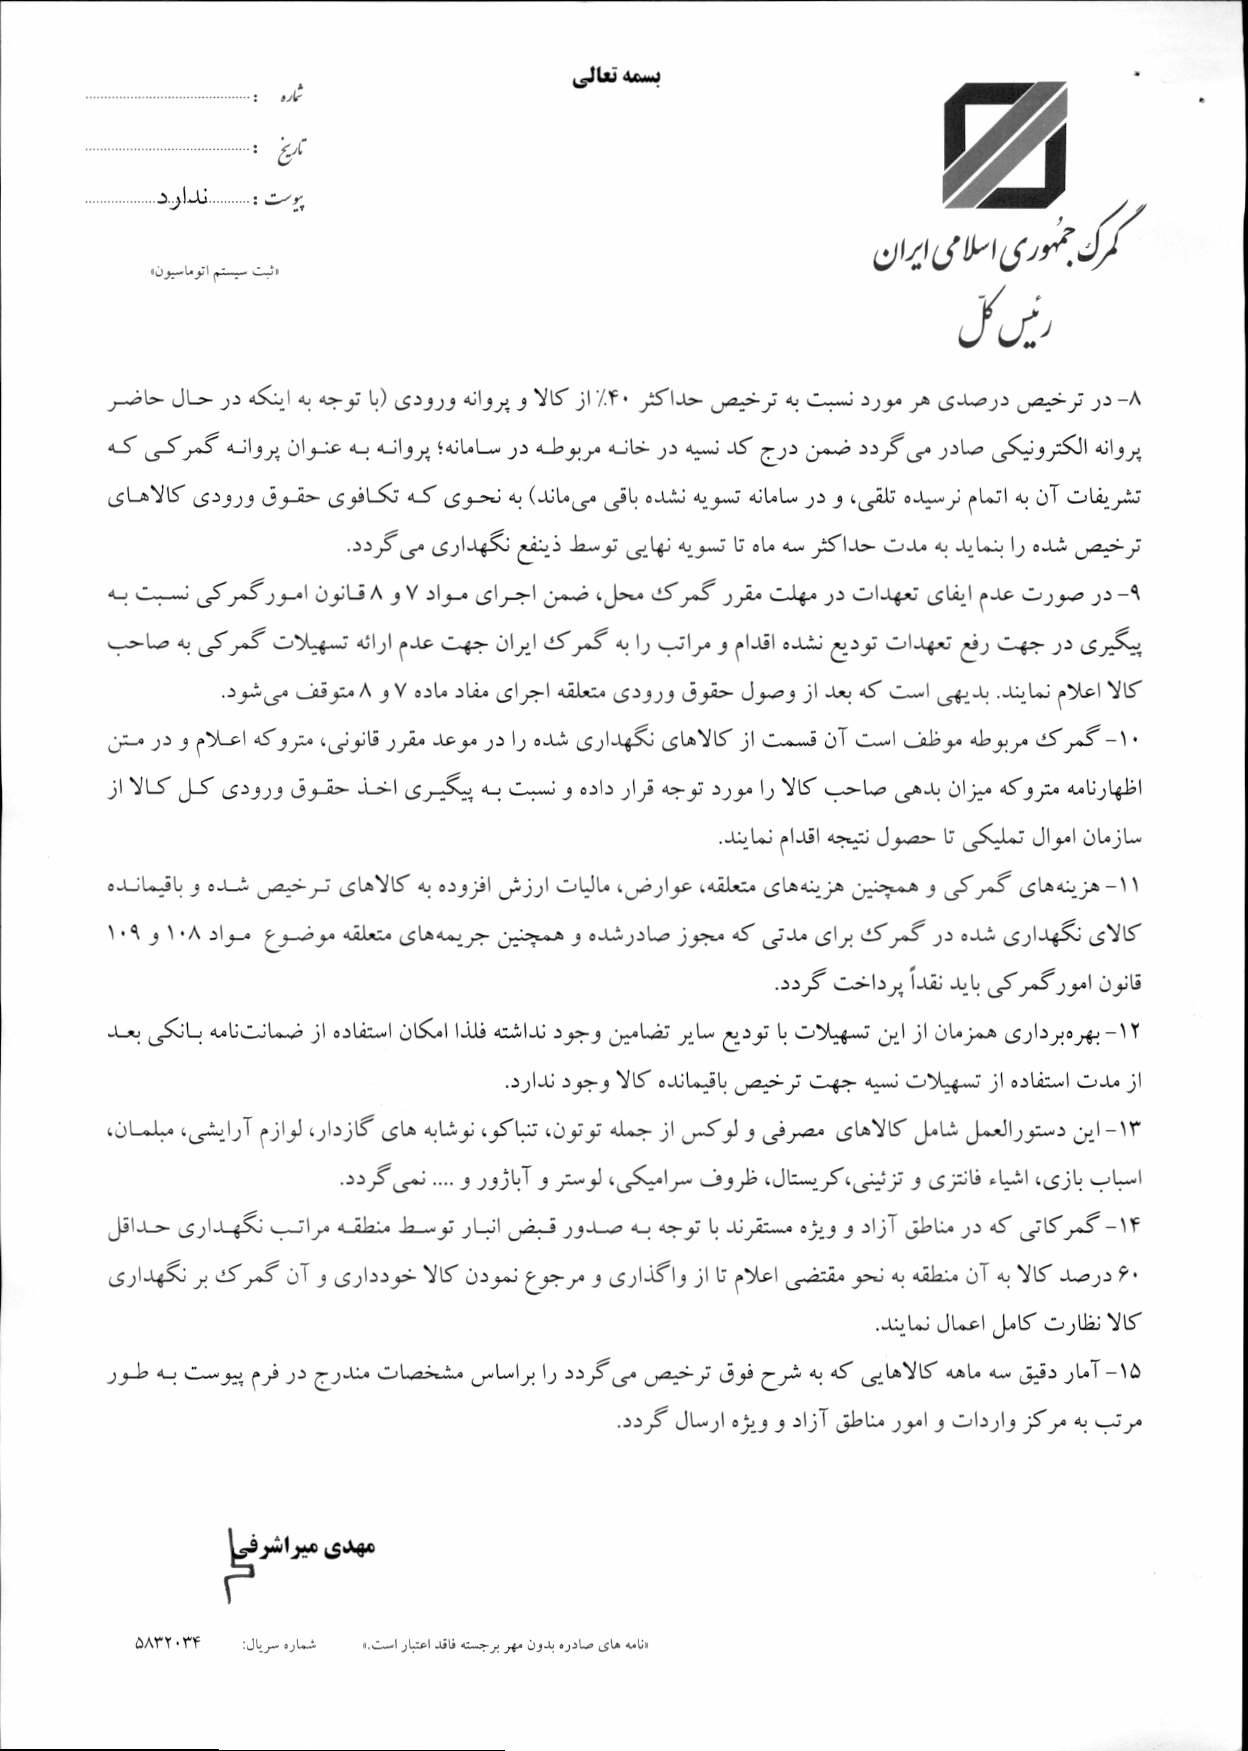 بسمه تعالی
شماره :
تاریخ :
پیوست : ندارد
«ثبت سیستم اتوماسیون»
گمرک جمهوری اسلامی ایران
رئیس کلّ
۸- در ترخیص درصدی هر مورد نسبت به ترخیص حداکثر ۴۰٪ از کالا و پروانه ورودی (با توجه به اینکه در حال حاضر
پروانه الکترونیکی صادر می‌گردد ضمن درج کد نسیه در خانه مربوطه در سامانه؛ پروانه به عنوان پروانه گمرکی که
تشریفات آن به اتمام نرسیده تلقی، و در سامانه تسویه نشده باقی می‌ماند) به نحوی که تکافوی حقوق ورودی کالاهای
ترخیص شده را بنماید به مدت حداکثر سه ماه تا تسویه نهایی توسط ذینفع نگهداری می‌گردد.
۹- در صورت عدم ایفای تعهدات در مهلت مقرر گمرک محل، ضمن اجرای مواد ۷ و ۸ قانون امورگمرکی نسبت به
پیگیری در جهت رفع تعهدات تودیع نشده اقدام و مراتب را به گمرک ایران جهت عدم ارائه تسهیلات گمرکی به صاحب
کالا اعلام نمایند. بدیهی است که بعد از وصول حقوق ورودی متعلقه اجرای مفاد ماده ۷ و ۸ متوقف می‌شود.
۱۰- گمرک مربوطه موظف است آن قسمت از کالاهای نگهداری شده را در موعد مقرر قانونی، متروکه اعلام و در متن
اظهارنامه متروکه میزان بدهی صاحب کالا را مورد توجه قرار داده و نسبت به پیگیری اخذ حقوق ورودی کل کالا از
سازمان اموال تملیکی تا حصول نتیجه اقدام نمایند.
۱۱- هزینه‌های گمرکی و همچنین هزینه‌های متعلقه، عوارض، مالیات ارزش افزوده به کالاهای ترخیص شده و باقیمانده
کالای نگهداری شده در گمرک برای مدتی که مجوز صادرشده و همچنین جریمه‌های متعلقه موضوع مواد ۱۰۸ و ۱۰۹
قانون امورگمرکی باید نقداً پرداخت گردد.
۱۲- بهره‌برداری همزمان از این تسهیلات با تودیع سایر تضامین وجود نداشته فلذا امکان استفاده از ضمانت‌نامه بانکی بعد
از مدت استفاده از تسهیلات نسیه جهت ترخیص باقیمانده کالا وجود ندارد.
۱۳- این دستورالعمل شامل کالاهای مصرفی و لوکس از جمله توتون، تنباکو، نوشابه های گازدار، لوازم آرایشی، مبلمان،
اسباب بازی، اشیاء فانتزی و تزئینی،کریستال، ظروف سرامیکی، لوستر و آباژور و .... نمی‌گردد.
۱۴- گمرکاتی که در مناطق آزاد و ویژه مستقرند با توجه به صدور قبض انبار توسط منطقه مراتب نگهداری حداقل
۶۰ درصد کالا به آن منطقه به نحو مقتضی اعلام تا از واگذاری و مرجوع نمودن کالا خودداری و آن گمرک بر نگهداری
کالا نظارت کامل اعمال نمایند.
۱۵- آمار دقیق سه ماهه کالاهایی که به شرح فوق ترخیص می‌گردد را براساس مشخصات مندرج در فرم پیوست به طور
مرتب به مرکز واردات و امور مناطق آزاد و ویژه ارسال گردد.
مهدی میراشرفی
«نامه های صادره بدون مهر برجسته فاقد اعتبار است.» شماره سریال: ۵۸۳۲۰۳۴